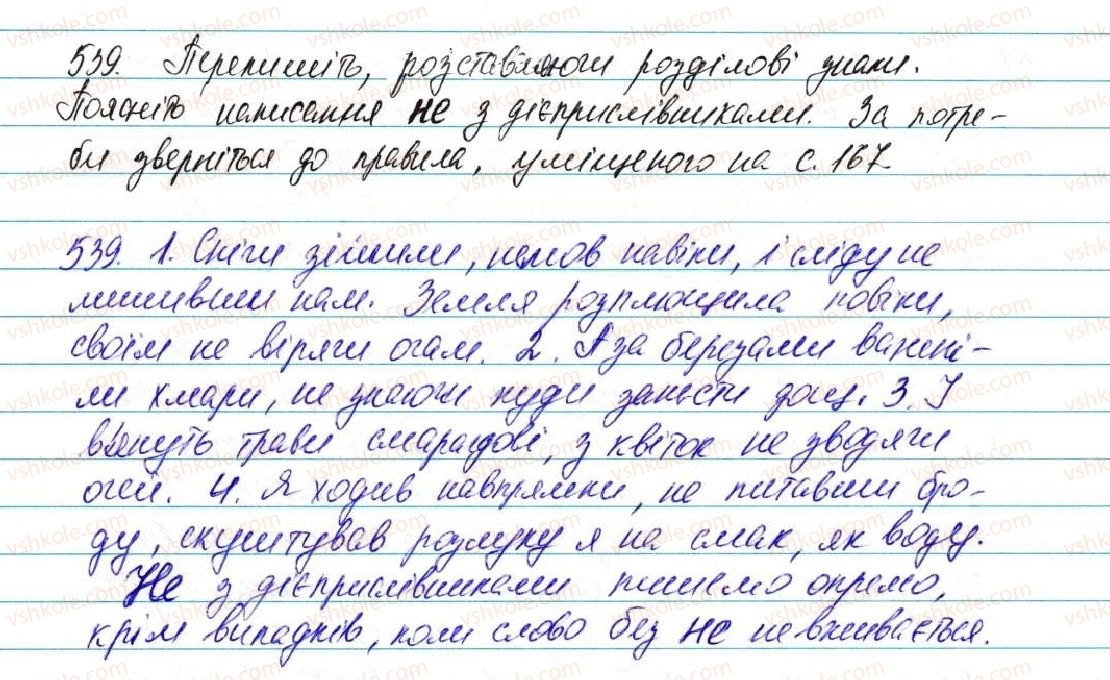 539. Перепишіть, розставляючи розділові знаки.
Поясніть написання не з дієприслівниками. За потре-
би зверніться до правила, уміщеного на с. 167
539. 1. Сніги зійшли, немов навіки, і сліду не
лишивши нам. Земля розплющила повіки,
своїм не вірячи очам. 2. А за березами важні-
ли хмари, не знаючи куди занести дощ. 3. І
в'януть трави смарагдові, з квіток не зводячи
очей. 4. Я ходив навпрямки, не питавши бро-
ду, скуштував розлуку я на смак, як воду.
Не з дієприслівниками пишемо окремо,
крім випадків, коли слово без не не вживається.